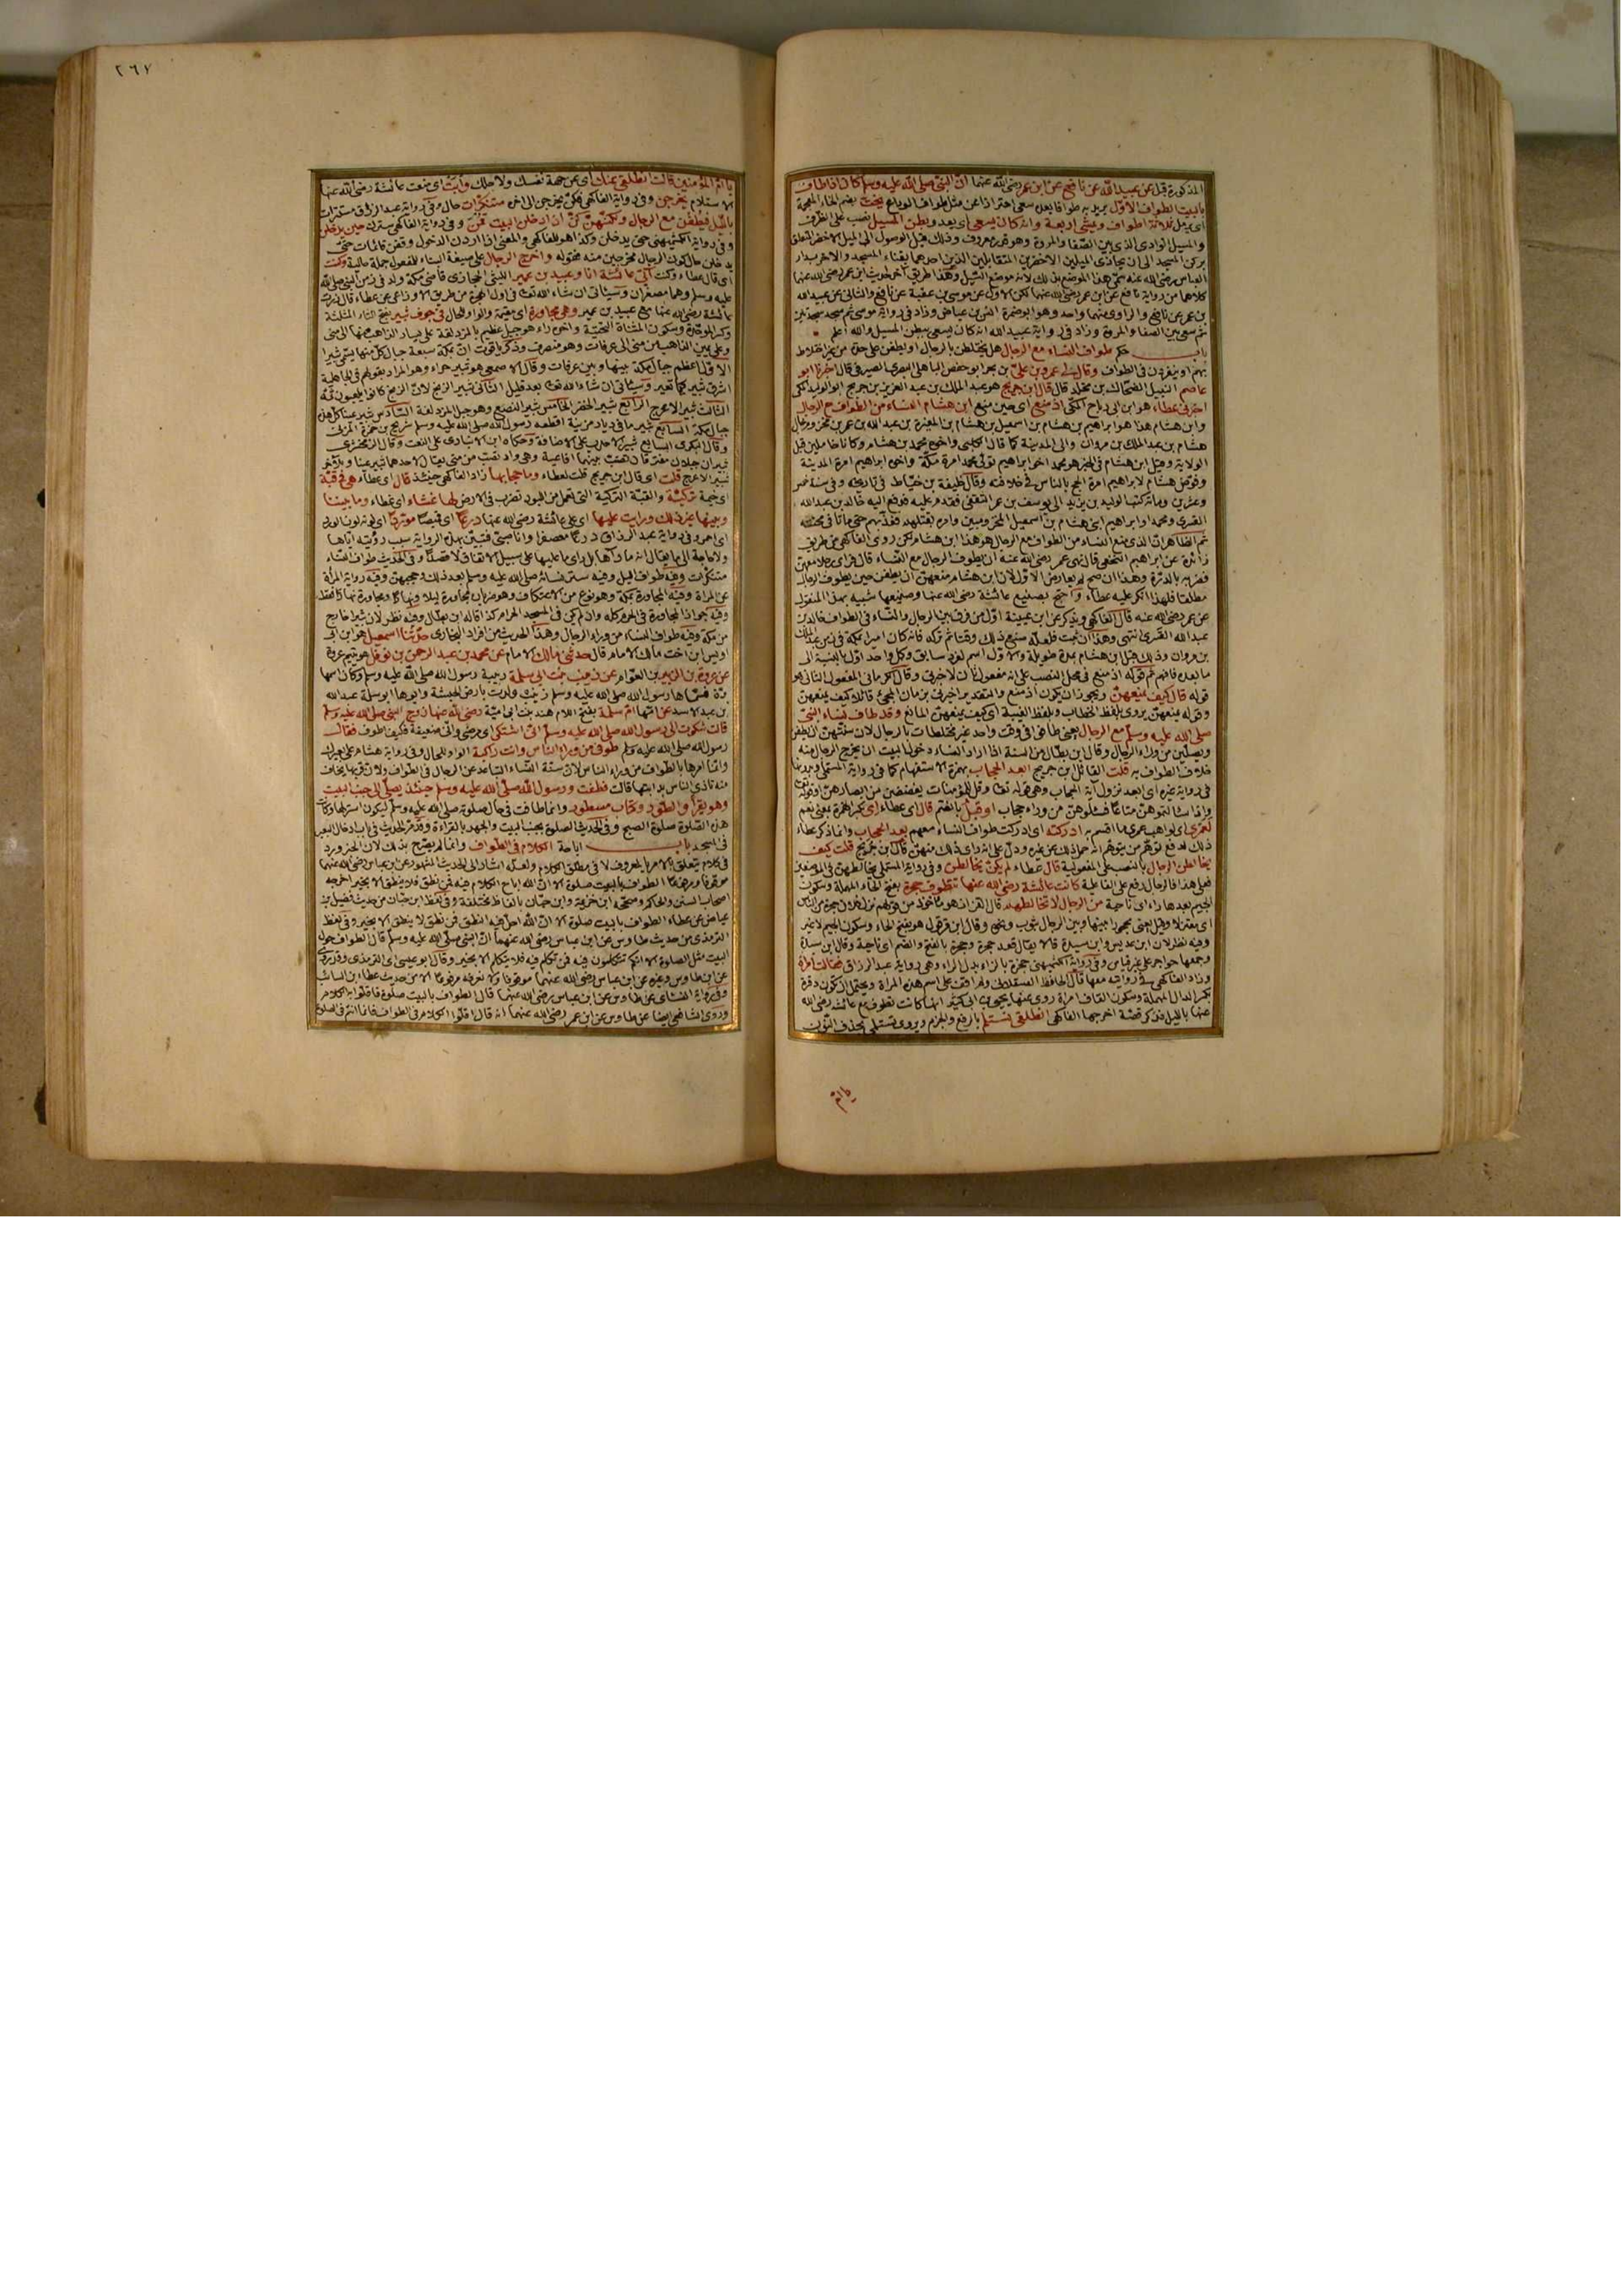 المذكورة قبل عن عبيد الله عن نافع عن ابن عمر رضي الله عنهما ان النبي صلى الله عليه وسلم كان اذا طاف
بالبيت الطواف الاول يريد به طوافا بعده سعي احترازا عن مثل طواف الوداع يخب بضم الخاء المعجمة
اي يرمل ثلاثة اطواف ويمشي اربعة وانه كان يسعى اي يعدو بطن المسيل نصب على الظرف
والمسيل الوادي الذي بين الصفا والمروة وهو معروف وذلك قبل الوصول الى الميل الاخضر المعلق
بركن المسجد الى ان يحاذي الميلين الاخضرين المتقابلين الذين احدهما بفناء المسجد والاخر بدار
العباس رضي الله عنه
كلاهما من رواية نافع عن ابن عمر رضي الله عنهما لكن الاول عن موسى بن عقبة عن نافع والثاني عن عبيد الله
بن عمر عن نافع والراوي عنهما واحد وهو ابو ضمرة انس بن عياض وزاد في رواية موسى ثم سجد سجدتين
ثم سعى بين الصفا والمروة وزاد في رواية عبيد الله انه كان يسعى ببطن المسيل والله اعلم
باب حكم طواف النساء مع الرجال هل يختلطن بالرجال او يطفن على حدة من غير اختلاط
بهم او ينفردن في الطواف وقال لي عمرو بن علي بن بحر ابو حفص الباهلي البصري الصيرفي قال اخبرنا ابو
عاصم النبيل الضحاك بن مخلد قال قال ابن جريج هو عبد الملك بن عبد العزيز بن جريج ابو الوليد المكي
اخبرني عطاء هو ابن ابي رباح المكي اذ منع اي حين منع ابن هشام النساء من الطواف مع الرجال
وابن هشام هذا هو ابراهيم بن هشام بن اسمعيل بن هشام بن المغيرة بن عبد الله بن عمر بن مخزوم وخال
هشام بن عبد الملك بن مروان والي المدينة كما قال الكلبي واخوه محمد بن هشام وكانا خاملين قبل
الولاية وقيل ابن هشام في الخبر هو محمد اخو ابراهيم تولى محمد امرة مكة واخوه ابراهيم امرة المدينة
وفوض هشام لابراهيم امرة الحج بالناس في خلافته وقال خليفة بن خياط في تاريخه وفي سنة خمس
وعشرين ومائة كتب الوليد بن يزيد الى يوسف بن عمر الثقفي فقدم عليه فدفع اليه خالد بن عبد الله
القسري ومحمدا وابراهيم ابني هشام بن اسمعيل المخزوميين وامره بقتلهم فعذبهم حتى ماتا في محبسه
ثم الظاهر ان الذي منع النساء من الطواف مع الرجال هو هذا ابن هشام لكن روى الفاكهي من طريق
زائدة عن ابراهيم النخعي قال نهى عمر رضي الله عنه ان يطوف الرجال مع النساء قال فراى رجلا معهن
فضربه بالدرة وهذا ان صح لم يعارض الاول لان ابن هشام منعهن ان يطفن حين يطوف الرجال
مطلقا فلهذا انكر عليه عطاء واحتج بصنيع عائشة رضي الله عنها وصنيعها شبيه بهذا المنقول
عن عمر رضي الله عنه قال الفاكهي ويذكر عن ابن عيينة اول من فرق بين الرجال والنساء في الطواف خالد بن
عبد الله القسري انتهى وهذا ان ثبت فلعله منع ذلك وقتا ثم تركه فانه كان امير مكة في زمن عبد الملك
بن مروان وذلك قبل ابن هشام بمدة طويلة والاول اسم لفرد سابق وكل واحد اول بالنسبة الى
ما بعده فافهم ثم قوله اذ منع في محل النصب على انه مفعول ثان لاخبرني وقال الكرماني المفعول الثاني هو
قوله قال كيف يمنعهن ويجوز ان يكون اذ منع والتقدير اخبرني بزمان المجيء قائلا كيف يمنعهن
وقوله يمنعهن يروى بلفظ الخطاب وبلفظ الغيبة اي كيف يمنعهن المانع وقد طاف نساء النبي
صلى الله عليه وسلم مع الرجال يعني طافن في وقت واحد غير مختلطات بالرجال لان سنتهن ان يطفن
ويصلين من وراء الرجال وقال ابن بطال من السنة اذا اراد النساء دخول البيت ان يخرج الرجال منه
خلاف الطواف به قلت القائل ابن جريج ابعد الحجاب بهمزة الاستفهام كما في رواية المستملي وبدونها
في رواية غيره اي ابعد نزول آية الحجاب وهي قوله تعالى وقل للمؤمنات يغضضن من ابصارهن وقوله تعالى
واذا سالتموهن متاعا فسئلوهن من وراء حجاب او قبل بالضم قال اي عطاء اي بكسر الهمزة بمعنى نعم
لعمري اي لواهب عمري ما اقسم به ادركته اي ادركت طواف النساء معهم بعد الحجاب وانما ذكر عطاء
ذلك لدفع توهم من يتوهم انه حمل ذلك عن غيره ودل على انه راى ذلك منهن قال ابن جريج قلت كيف
يخالطن الرجال بالنصب على المفعولية قال عطاء لم يكن يخالطن وفي رواية المستملي يخالطهن في الموضعين
فعلى هذا فالرجال رفع على الفاعلية كانت عائشة رضي الله عنها تطوف حجرة بفتح الحاء المهملة وسكون
الجيم بعدها راء اي ناحية من الرجال لا تخالطهم قال القزاز هو مأخوذ من قولهم نزل فلان حجرة من الناس
اي معتزلا وقيل يعني محجورا بينها وبين الرجال بثوب ونحوه وقال ابن قرقول هو بفتح الحاء وسكون الجيم لا غير
وفيه نظر لان ابن عديس وابن سيدة قالا يقال قعد حجرة وحجرة بالفتح والضم اي ناحية وقال ابن سيدة
وجمعها حواجر على غير قياس وفي رواية الكشميهني حجزة بالزاء بدل الراء وهي رواية عبد الرزاق فقالت امرأة
وزاد الفاكهي في روايته معها قال الحافظ العسقلاني ولم اقف على اسم هذه المراة ويحتمل ان تكون دقرة
بكسر الدال المهملة وسكون القاف امراة روى عنها يحيى بن ابي كثير انها كانت تطوف مع عائشة رضي الله
عنها بالليل فذكر قصة اخرجها الفاكهي انطلقي نستلم بالرفع والجزم ويروى تستلمي بحذف النون
يا ام
٢٦٧
يا ام المؤمنين قالت انطلقي عنك اي عن جهة نفسك ولاجلك وأبت اي منعت عائشة رضي الله عنها
الاستلام يخرجن وفي رواية الفاكهي فكن يخرجن الى اخره متنكرات حال وفي رواية عبد الرزاق مستترات
بالليل فيطفن مع الرجال ولكنهن كن اذا دخلن البيت قمن وفي رواية الفاكهي سترن حين يدخلن
وفي رواية الكشميهني حتى يدخلن وكذا هو للفاكهي والمعنى اذا اردن الدخول وقفن قائمات حتى
يدخلن حال كون الرجال مخرجين منه فقوله واخرج الرجال على صيغة البناء للمفعول جملة حالية وكنت
اي قال عطاء وكنت آتي عائشة انا وعبيد بن عمير الليثي الحجازي قاضي مكة ولد في زمن النبي صلى الله
عليه وسلم وهما مصغران وسيأتي ان شاء الله تعالى في اول الهجرة من طريق الاوزاعي عن عطاء قال زرت
عائشة رضي الله عنها مع عبيد بن عمير وهي مجاورة اي مقيمة والواو للحال في جوف ثبير بفتح الثاء المثلثة
وكسر الموحدة وسكون المثناة التحتية واخره راء هو جبل عظيم بالمزدلفة على يسار الذاهب منها الى منى
وعلى يمين الذاهب من منى الى عرفات وهو منصرف وذكر ياقوت ان بمكة سبعة جبال كل منها يسمى ثبيرا
الاول اعظم جبال مكة بينها وبين عرفات وقال الاصمعي هو ثبير حراء وهو المراد بقولهم في الجاهلية
اشرق ثبير كيما نغير وسيأتي ان شاء الله تعالى بعد قليل الثاني ثبير الزنج لان الزنج كانوا يلعبون عنده
الثالث ثبير الاعرج الرابع ثبير الخضراء الخامس ثبير النصع وهو جبل المزدلفة السادس ثبير غيناء كل اهل
جبال مكة السابع ثبير ماء في ديار مزينة اقطعه رسول الله صلى الله عليه وسلم شريح بن ضمرة المزني
وقال البكري السابع ثبير الاحدب على الاضافة وحكاه ابن الانباري على النعت وقال الزمخشري
ثبيران جبلان مفترقان تصب بينهما افاعية وهي واد تصب من منى يقال لاحدهما ثبير غينا وللاخر
ثبير الاعرج قلت اي قال ابن جريج قلت لعطاء وما حجابها زاد الفاكهي حينئذ قال اي عطاء هي في قبة
اي خيمة تركية والقبة التركية التي تعمل من اللبود تضرب في الارض لها غشاء اي غطاء وما بيننا
وبينها غير ذلك ورأيت عليها اي على عائشة رضي الله عنها درعا اي قميصا موردا اي لونه لون الورد
اي احمر وفي رواية عبد الرزاق درعا معصفرا وانا صبي فتبين بهذه الرواية سبب رؤيته اياها
ولا حاجة الى ما يقال انه ما رآها بل راى ما عليها على سبيل الاتفاق لا قصدا وفي الحديث طواف النساء
متنكرات وفيه طواف الليل وفيه ستر نسائه صلى الله عليه وسلم بعد ذلك وحجبهن وفيه رواية المرأة
عن المراة وفيه المجاورة بمكة وهو نوع من الاعتكاف وهو ضربان مجاورة ليلا ونهارا ومجاورة نهارا فقط
وفيه جواز المجاورة في الحرم كله وان لم يكن في المسجد الحرام كذا قاله ابن بطال وفيه نظر لان ثبيرا خارج
من مكة وفيه طواف النساء من وراء الرجال وهذا الحديث من افراد البخاري حدثنا اسمعيل هو ابن ابي
اويس ابن اخت مالك الامام قال حدثني مالك الامام عن محمد بن عبد الرحمن بن نوفل هو يتيم عروة
عن عروة بن الزبير بن العوام عن زينب بنت ابي سلمة ربيبة رسول الله صلى الله عليه وسلم وكان اسمها
برة فسماها رسول الله صلى الله عليه وسلم زينب وولدت بارض الحبشة وابوها ابو سلمة عبد الله
بن عبد الاسد عن امها ام سلمة بفتح اللام هند بنت ابي امية رضي الله عنها زوج النبي صلى الله عليه وسلم
قالت شكوت الى رسول الله صلى الله عليه وسلم اني اشتكي اي مرضي واني ضعيفة فكيف اطوف فقال
رسول الله صلى الله عليه وسلم طوفي من وراء الناس وانت راكبة الواو للحال وفي رواية هشام على بعيرك
وانما امرها بالطواف من وراء الناس لان سنة النساء التباعد عن الرجال في الطواف ولان قربها يخاف
منه تأذي الناس بدابتها قالت فطفت ورسول الله صلى الله عليه وسلم حينئذ يصلي الى جنب البيت
وهو يقرأ والطور وكتاب مسطور وانما طافت في حال صلوته صلى الله عليه وسلم ليكون استر لها وكانت
هذه الصلوة صلوة الصبح وفي الحديث الصلوة بجنب البيت والجهر بالقراءة وقد مر الحديث في باب ادخال البعير
في المسجد باب اباحة الكلام في الطواف وانما لم يصرح بذلك لان الخبر ورد
في كلام يتعلق بالامر بالمعروف لا في مطلق الكلام ولعله اشار الى الحديث المشهور عن ابن عباس رضي الله عنهما
موقوفا ومرفوعا الطواف بالبيت صلوة الا ان الله اباح الكلام فيه فمن نطق فلا ينطق الا بخير اخرجه
اصحاب السنن والحاكم وصححه ابن خزيمة وابن حبان بالفاظ مختلفة وفي لفظ ابن حبان من حديث فضيل بن
عياض عن عطاء الطواف بالبيت صلوة الا ان الله احل فيه النطق فمن نطق لا ينطق الا بخير وفي لفظ
الترمذي من حديث طاوس عن ابن عباس رضي الله عنهما ان النبي صلى الله عليه وسلم قال الطواف حول
البيت مثل الصلوة الا انكم تتكلمون فيه فمن تكلم فيه فلا يتكلم الا بخير وقال ابو عيسى اي الترمذي وقد روي
عن ابن طاوس وغيره عن ابن عباس رضي الله عنهما موقوفا ولا نعرفه مرفوعا الا من حديث عطاء بن السائب
وفي رواية النسائي عن طاوس عن ابن عباس رضي الله عنهما قال الطواف بالبيت صلوة فاقلوا به الكلام
وروى الشافعي ايضا عن طاوس عن ابن عمر رضي الله عنهما انه قال اقلوا الكلام في الطواف فانما انتم في الصلوة